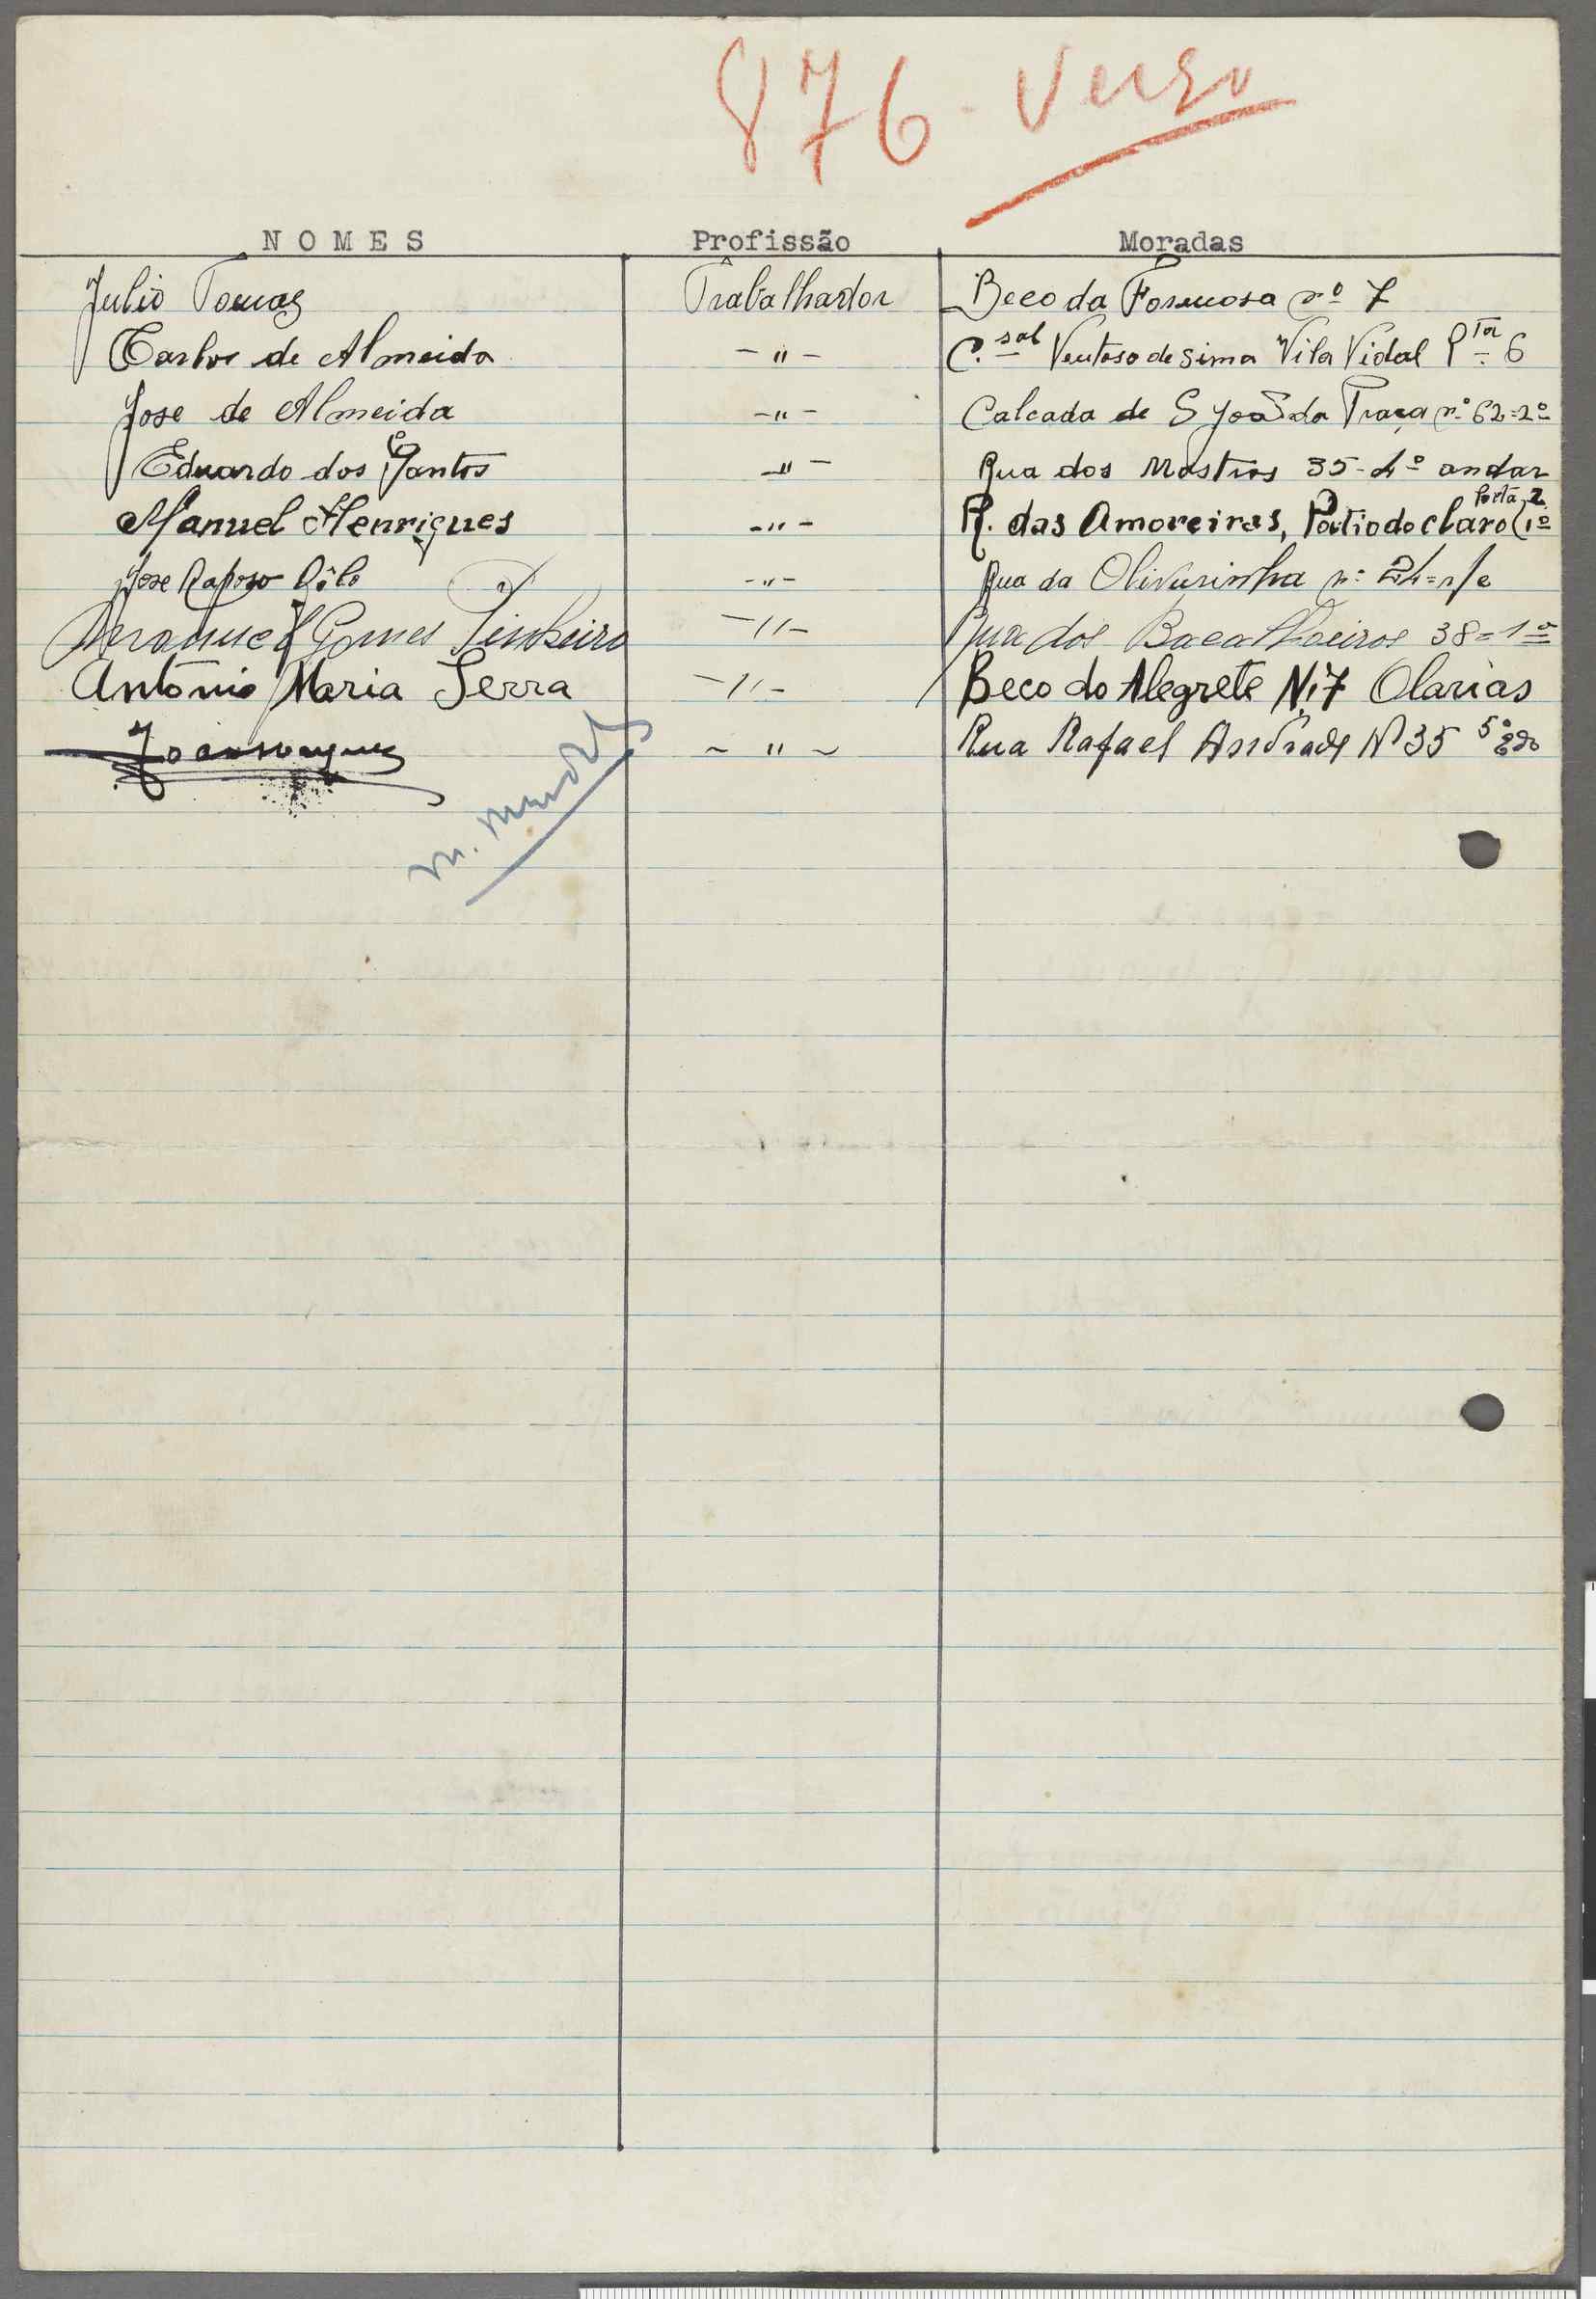 876 - Verso
NOMES Profissão Moradas
Julio Tomas Trabalhador Beco da Formosa nº 7
Carlos de Almeida -"- C.sal Ventoso de sima Vila Vidal P.ta 6
Jose de Almeida -"- Calcada de S João da Praça nº 62=2º
Eduardo dos Santos -"- Rua dos Mastros 35-4º andar
Manuel Henriques -"- R. das Amoreiras, Patio do Claro Porta 2 1º
Jose Raposo -"- Rua da Oliveirinha nº 24=r/c
Manuel Gomes Pinheiro -"- Rua dos Bacalhoeiros 38=1º
António Maria Serra -"- Beco do Alegrete Nº 7 Olarias
-"- Rua Rafael Andrade Nº 35 5º